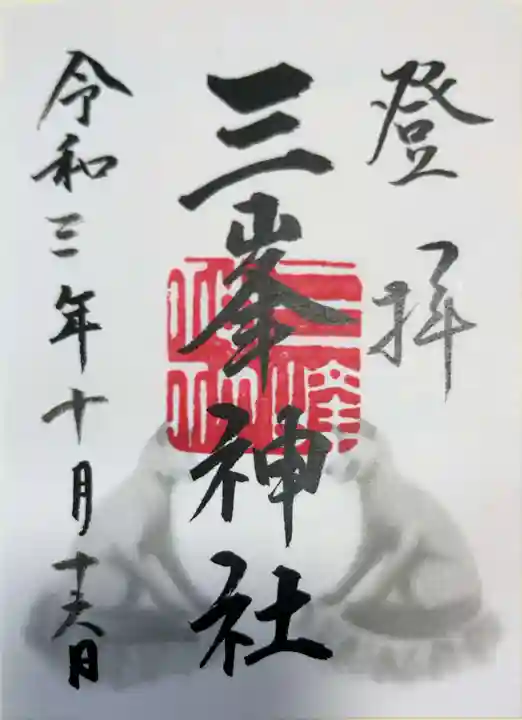 登拝
三峯神社
令和三年十月十六日